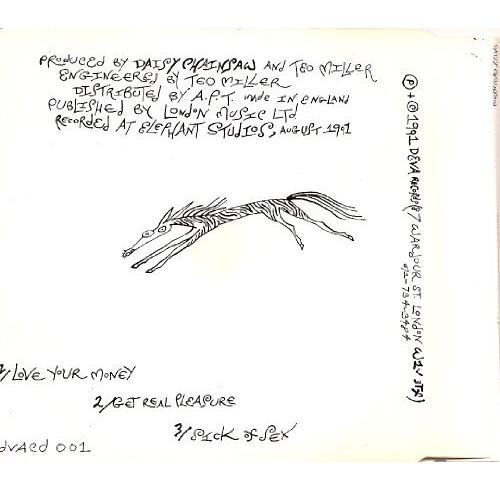 PRODUCED BY DAISY CHAINSAW AND TEO MILLER
ENGINEERED BY TEO MILLER
DISTRIBUTED BY A.P.T. MADE IN ENGLAND
PUBLISHED BY LONDON MUSIC LTD
RECORDED AT ELEPHANT STUDIOS, AUGUST 1991
℗+©1991 DEVA RECORDS(7 WARDOUR ST. LONDON W1V 3TP)
071-734-3484
1/LOVE YOUR MONEY
2/GET REAL PLEASURE
3/SICK OF SEX
dVAcd 001